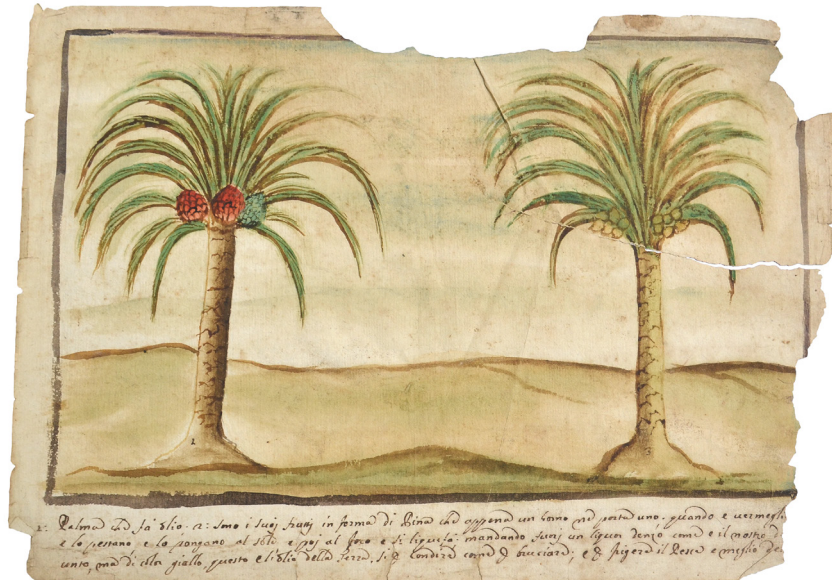 1: Palma che fà oglio. 2: Sono i suoi frutti in forma di Pina che appena un homo ne porta uno. quando e vermegl
e lo pestano e lo pongano al sole e poi al foco e si liquefà: mandando fuori un liquor denzo come e il nostro
unto, ma di color giallo, questo e l'oglio della Terra, si p condire come p bruciare; e p frigere il Pesce e meglio de